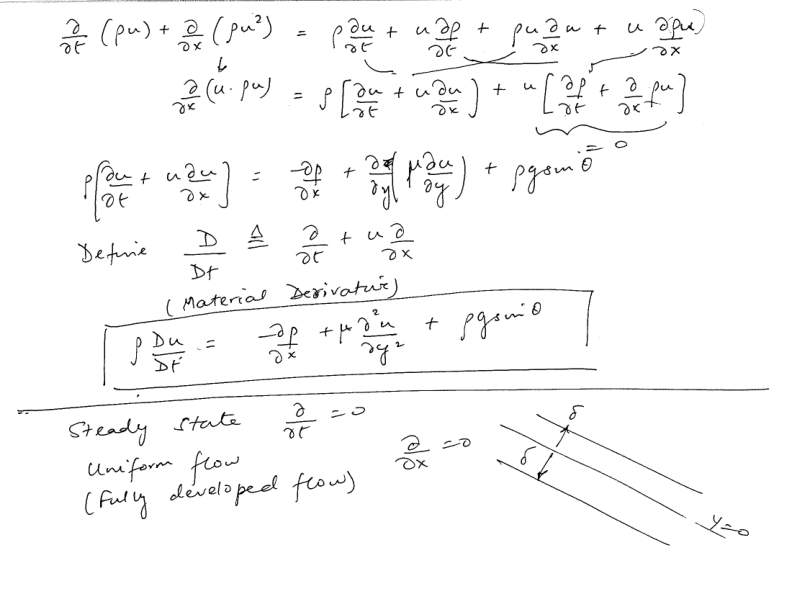 ∂/∂t (ρu) + ∂/∂x (ρu²) = ρ ∂u/∂t + u ∂ρ/∂t + ρu ∂u/∂x + u ∂ρu/∂x
∂/∂x (u · ρu) = ρ [∂u/∂t + u ∂u/∂x] + u [∂ρ/∂t + ∂/∂x ρu]
= 0
ρ[∂u/∂t + u ∂u/∂x] = -∂p/∂x + ∂/∂y (μ ∂u/∂y) + ρg sin θ
Define D/Dt ≜ ∂/∂t + u ∂/∂x
(Material Derivative)
ρ Du/Dt = -∂p/∂x + μ ∂²u/∂y² + ρg sin θ
Steady state ∂/∂t = 0
Uniform flow ∂/∂x = 0
(Fully developed flow)
δ
δ
y=0